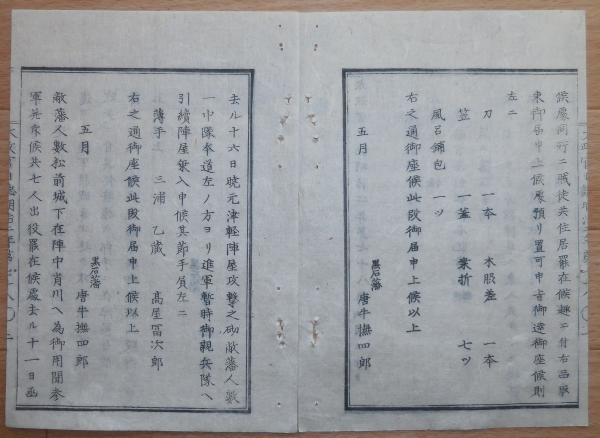 候處同所ニ賊徒共住居罷在候趣ニ付右品取
東御届申上候處預リ置可申旨御達御座候則
左ニ
刀 一本 木股差 一本
笠 一蓋 菓折 七ツ
風呂鋪包 一ツ
右之通御座候此段御届申上候以上
五月 黒石藩 唐牛撫四郎
去ル十六日暁元津軽陣屋攻撃之砌敝藩人數
一中隊本道左ノ方ヨリ進軍暫時御親兵隊ヘ
引續陣屋乗入申候其節手負左ニ
薄手 三浦乙蔵 髙屋冨次郎
右之通御座候此段御届申上候以上
五月 黒石藩 唐牛撫四郎
敝藩人數松前城下在陣中肖川ヘ為御用聞参
軍并衆候共七人出役罷在候處去ル十一日函